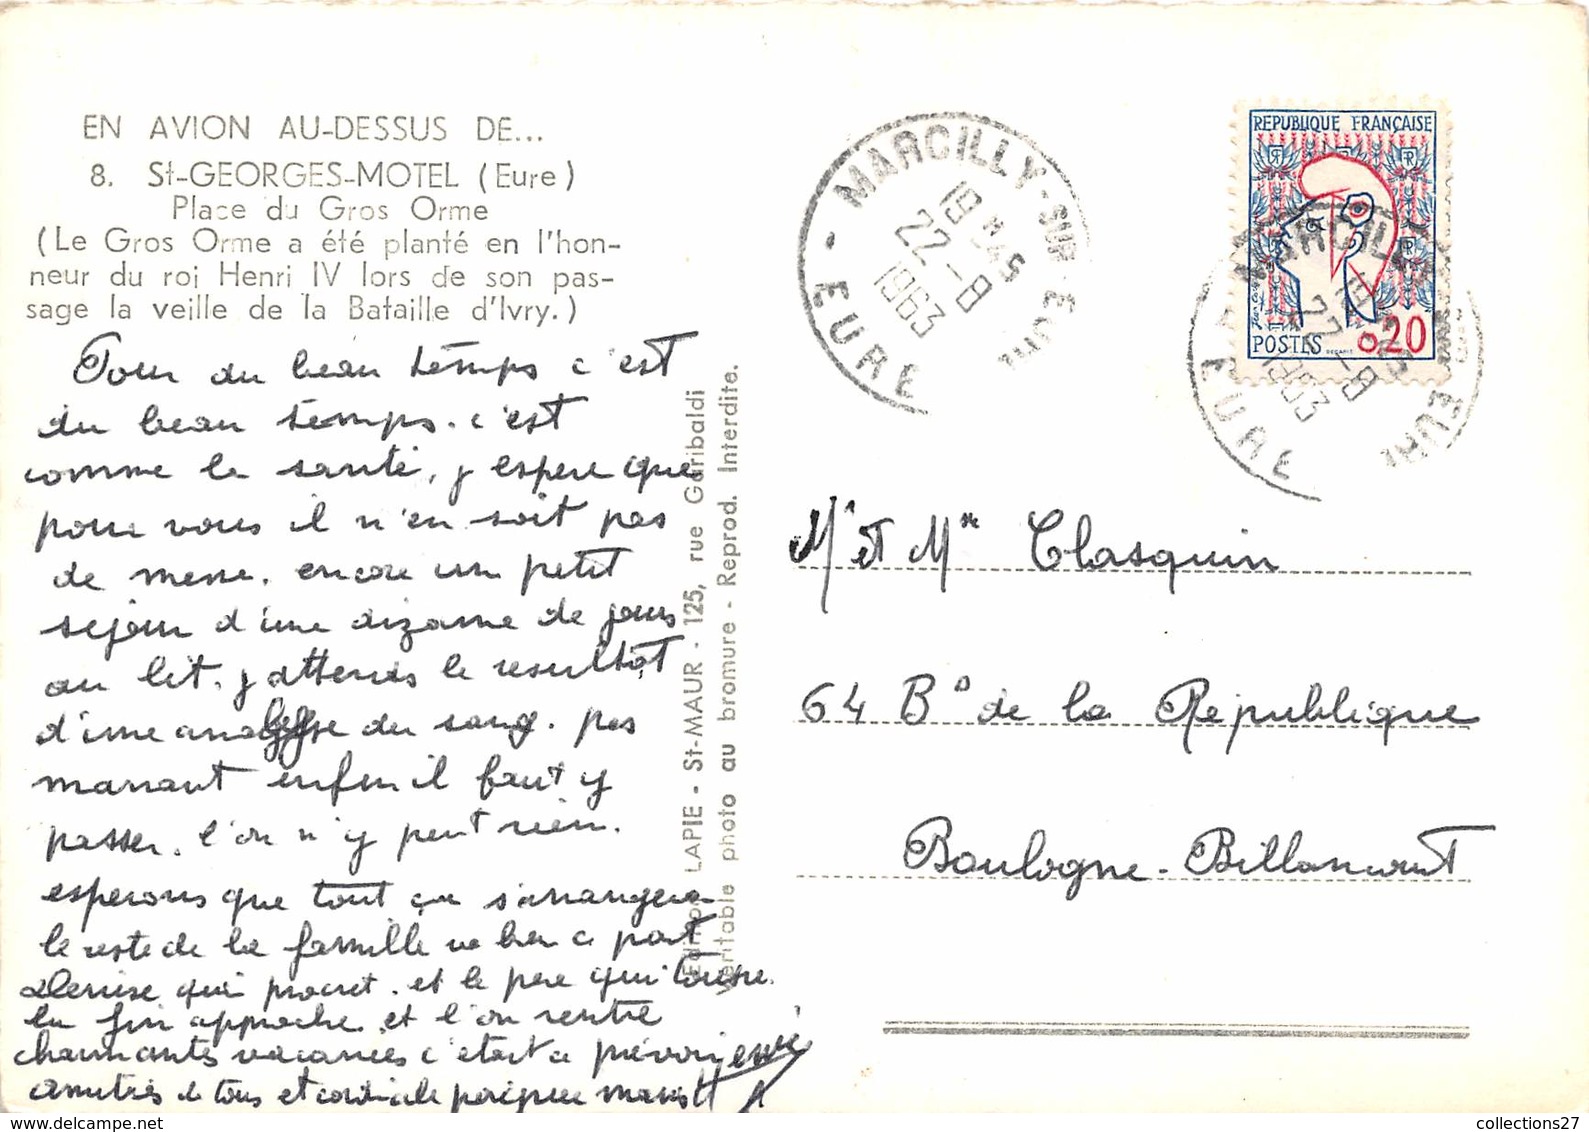 EN AVION AU-DESSUS DE...
8. St-GEORGES-MOTEL (Eure)
Place du Gros Orme
(Le Gros Orme a été planté en l'hon-
neur du roi Henri IV lors de son pas-
sage la veille de la Bataille d'Ivry.)
Pour du beau temps c'est
du beau temps. c'est
comme la santé, j espere que
pour vous il n'en soit pas
de meme. encore un petit
sejour d'une dizaine de jours
au lit. j attends le resultat
d'une analyse du sang. pas
marrant enfin il faut y
passer. l'on n'y peut rien.
esperons que tout ça s'arrangera
le reste de la famille va bien a part
Denise qui et le pere qui tousse.
la fin approche et l'on rentre
charmantes vacances c'etait a prévoir
amitiés de tous et cordiale poignee mains
Edition LAPIE - St-MAUR - 125, rue Garibaldi
Véritable photo au bromure - Reprod. Interdite.
MARCILLY-SUR-EURE
18 H 45
22 -8
1963
EURE
REPUBLIQUE FRANÇAISE
POSTES 0,20
MARCILLY-SUR-EURE
18 H 45
22 -8
1963
EURE
Mr et Mme Clasquin
64 Bd de la République
Boulogne-Billancourt
collections27